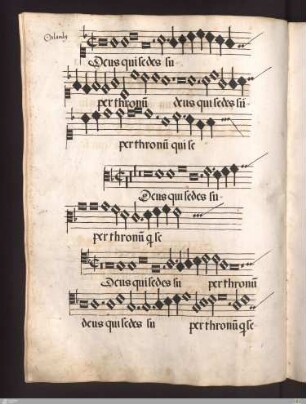 Orlandj
Deus qui sedes su
per thronū deus qui sedes su
per thronū qui se
Deus qui sedes su
per thronū q se
Deus qui sedes su per thronū
deus qui sedes su per thronū q se